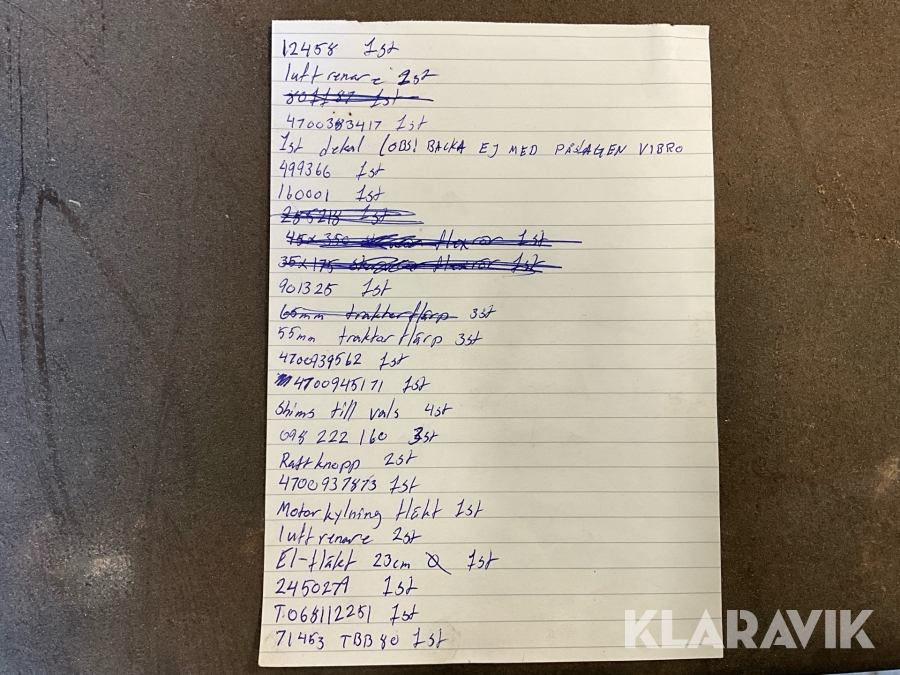 12458 1st
luftrenare 2st
801187 1st
4700383417 1st
1st dekal (OBS! BACKA EJ MED PÅSLAGEN VIBRO
499366 1st
160001 1st
255218 1st
45x350 flexrör 1st
35x175 flexrör 1st
901325 1st
65mm traktorflärp 3st
55mm traktorflärp 3st
4700939562 1st
4700945171 1st
Shims till vals 4st
098 222 160 3st
Rattknopp 2st
4700937873 1st
Motorkylning fläkt 1st
luftrenare 2st
El-fläkt 23cm Ø 1st
245027A 1st
T.068112251 1st
71453 TBB80 1st
KLARAVIK